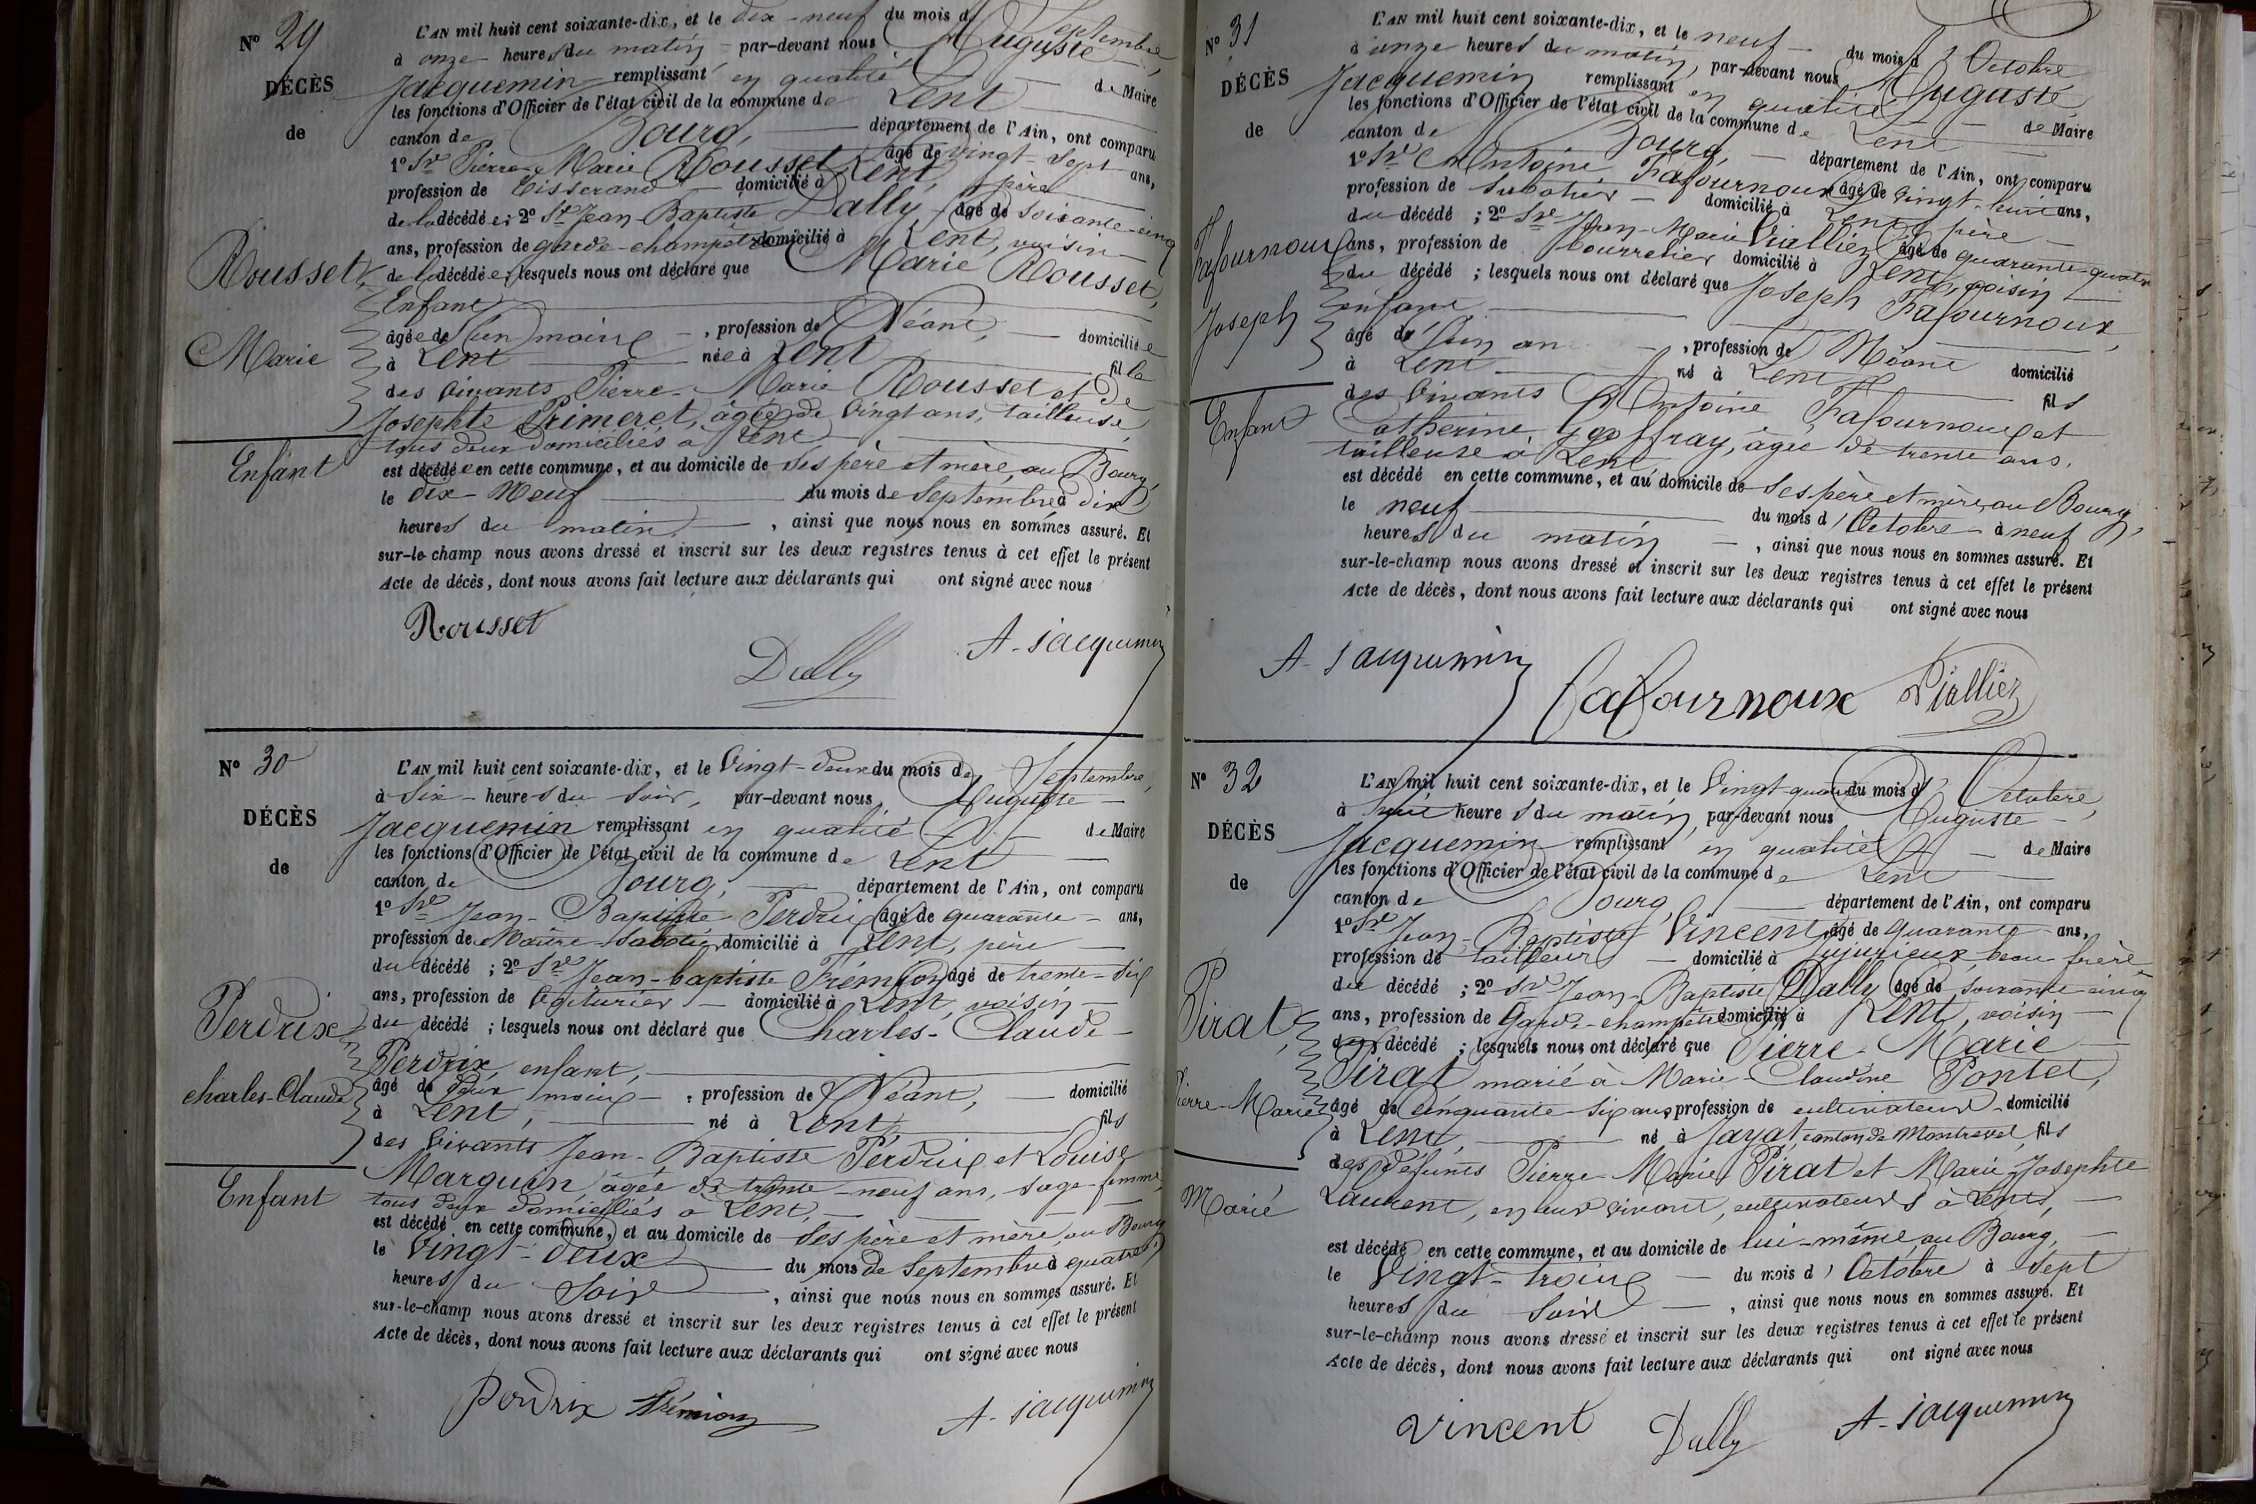 N° 29
DÉCÈS
de
Rousset
Marie
Enfant
L'AN mil huit cent soixante-dix, et le dix-neuf du mois de Septembre,
à onze heures du matin par-devant nous Auguste
Jacquemin remplissant en qualité de Maire
les fonctions d'Officier de l'état civil de la commune de Lent
canton de Bourg, département de l'Ain, ont comparu
1° Sr Pierre-Marie Rousset âgé de vingt-sept ans,
profession de tisserand domicilié à Lent, père
de la décédée; 2° Sr Jean-Baptiste Dally âgé de soixante-cinq
ans, profession de garde-champêtre domicilié à Lent, voisin
de la décédée; lesquels nous ont déclaré que Marie Rousset,
Enfant
âgée de un mois, profession de Néant, domiciliée
à Lent née à Lent fille
des vivants Pierre-Marie Rousset et de
Josephte Primeret, âgée de vingt ans, tailleuse,
tous deux domiciliés à Lent
est décédée en cette commune, et au domicile de ses père et mère, au Bourg,
le dix-Neuf du mois de Septembre à dix
heures du matin, ainsi que nous nous en sommes assuré. Et
sur-le-champ nous avons dressé et inscrit sur les deux registres tenus à cet effet le présent
Acte de décès, dont nous avons fait lecture aux déclarants qui ont signé avec nous
Rousset
Dally
A. Jacquemin
N° 30
DÉCÈS
de
Perdrix
Charles-Claude
Enfant
L'AN mil huit cent soixante-dix, et le vingt-deux du mois de Septembre,
à six heures du soir, par-devant nous Auguste
Jacquemin remplissant en qualité de Maire
les fonctions d'Officier de l'état civil de la commune de Lent
canton de Bourg, département de l'Ain, ont comparu
1° Sr Jean-Baptiste Perdrix âgé de quarante ans,
profession de Maître-Sabotier domicilié à Lent, père
du décédé; 2° Sr Jean-baptiste Trémion âgé de trente-six
ans, profession de Voiturier domicilié à Lent, voisin
du décédé; lesquels nous ont déclaré que Charles-Claude
Perdrix, enfant,
âgé de deux mois, profession de Néant, domicilié
à Lent, né à Lent, fils
des vivants Jean-Baptiste Perdrix et Louise
Marguin âgée de trente-neuf ans, sage-femme,
tous deux domiciliés à Lent,
est décédé en cette commune, et au domicile de ses père et mère, au Bourg
le vingt-deux du mois de Septembre à quatre
heures du soir, ainsi que nous nous en sommes assuré. Et
sur-le-champ nous avons dressé et inscrit sur les deux registres tenus à cet effet le présent
Acte de décès, dont nous avons fait lecture aux déclarants qui ont signé avec nous
Perdrix Trémion
A. Jacquemin
N° 31
DÉCÈS
de
Fafournoux
Joseph
Enfant
L'AN mil huit cent soixante-dix, et le neuf du mois d'Octobre
à onze heures du matin, par-devant nous Auguste
Jacquemin remplissant en qualité de Maire
les fonctions d'Officier de l'état civil de la commune de Lent
canton de Bourg, département de l'Ain, ont comparu
1° Sr Antoine Fafournoux âgé de vingt-huit ans,
profession de sabotier domicilié à Lent, père
du décédé; 2° Sr Jean-Marie Vialliez âgé de quarante-quatre
ans, profession de bourrelier domicilié à Lent, voisin
du décédé; lesquels nous ont déclaré que Joseph Fafournoux,
enfant
âgé de un an, profession de Néant domicilié
à Lent né à Lent fils
des vivants Antoine Fafournoux et
Catherine Geoffray, âgée de trente ans,
tailleuse à Lent
est décédé en cette commune, et au domicile de ses père et mère, au Bourg,
le neuf du mois d'Octobre à neuf
heures du matin, ainsi que nous nous en sommes assuré. Et
sur-le-champ nous avons dressé et inscrit sur les deux registres tenus à cet effet le présent
Acte de décès, dont nous avons fait lecture aux déclarants qui ont signé avec nous
A. Jacquemin
Fafournoux Vialliez
N° 32
DÉCÈS
de
Pirat,
Pierre-Marie
Marié
L'AN mil huit cent soixante-dix, et le vingt-quatre du mois d'Octobre,
à huit heures du matin, par-devant nous Auguste
Jacquemin remplissant en qualité de Maire
les fonctions d'Officier de l'état civil de la commune de Lent
canton de Bourg, département de l'Ain, ont comparu
1° Sr Jean-Baptiste Vincent, âgé de quarante ans,
profession de tailleur domicilié à Jujurieux, beau frère
du décédé; 2° Sr Jean-Baptiste Dally âgé de soixante-cinq
ans, profession de Garde-champêtre domicilié à Lent, voisin
du décédé; lesquels nous ont déclaré que Pierre-Marie
Pirat marié à Marie-Claudine Pontet,
âgé de cinquante-six ans profession de cultivateur domicilié
à Lent, né à Jayat, canton de Montrevel fils
des défunts Pierre-Marie Pirat et Marie-Josephte
Laurent, en leur vivant, cultivateurs à Lent,
est décédé en cette commune, et au domicile de lui-même, au Bourg,
le vingt-trois du mois d'Octobre à sept
heures du soir, ainsi que nous nous en sommes assuré. Et
sur-le-champ nous avons dressé et inscrit sur les deux registres tenus à cet effet le présent
Acte de décès, dont nous avons fait lecture aux déclarants qui ont signé avec nous
Vincent Dally A. Jacquemin